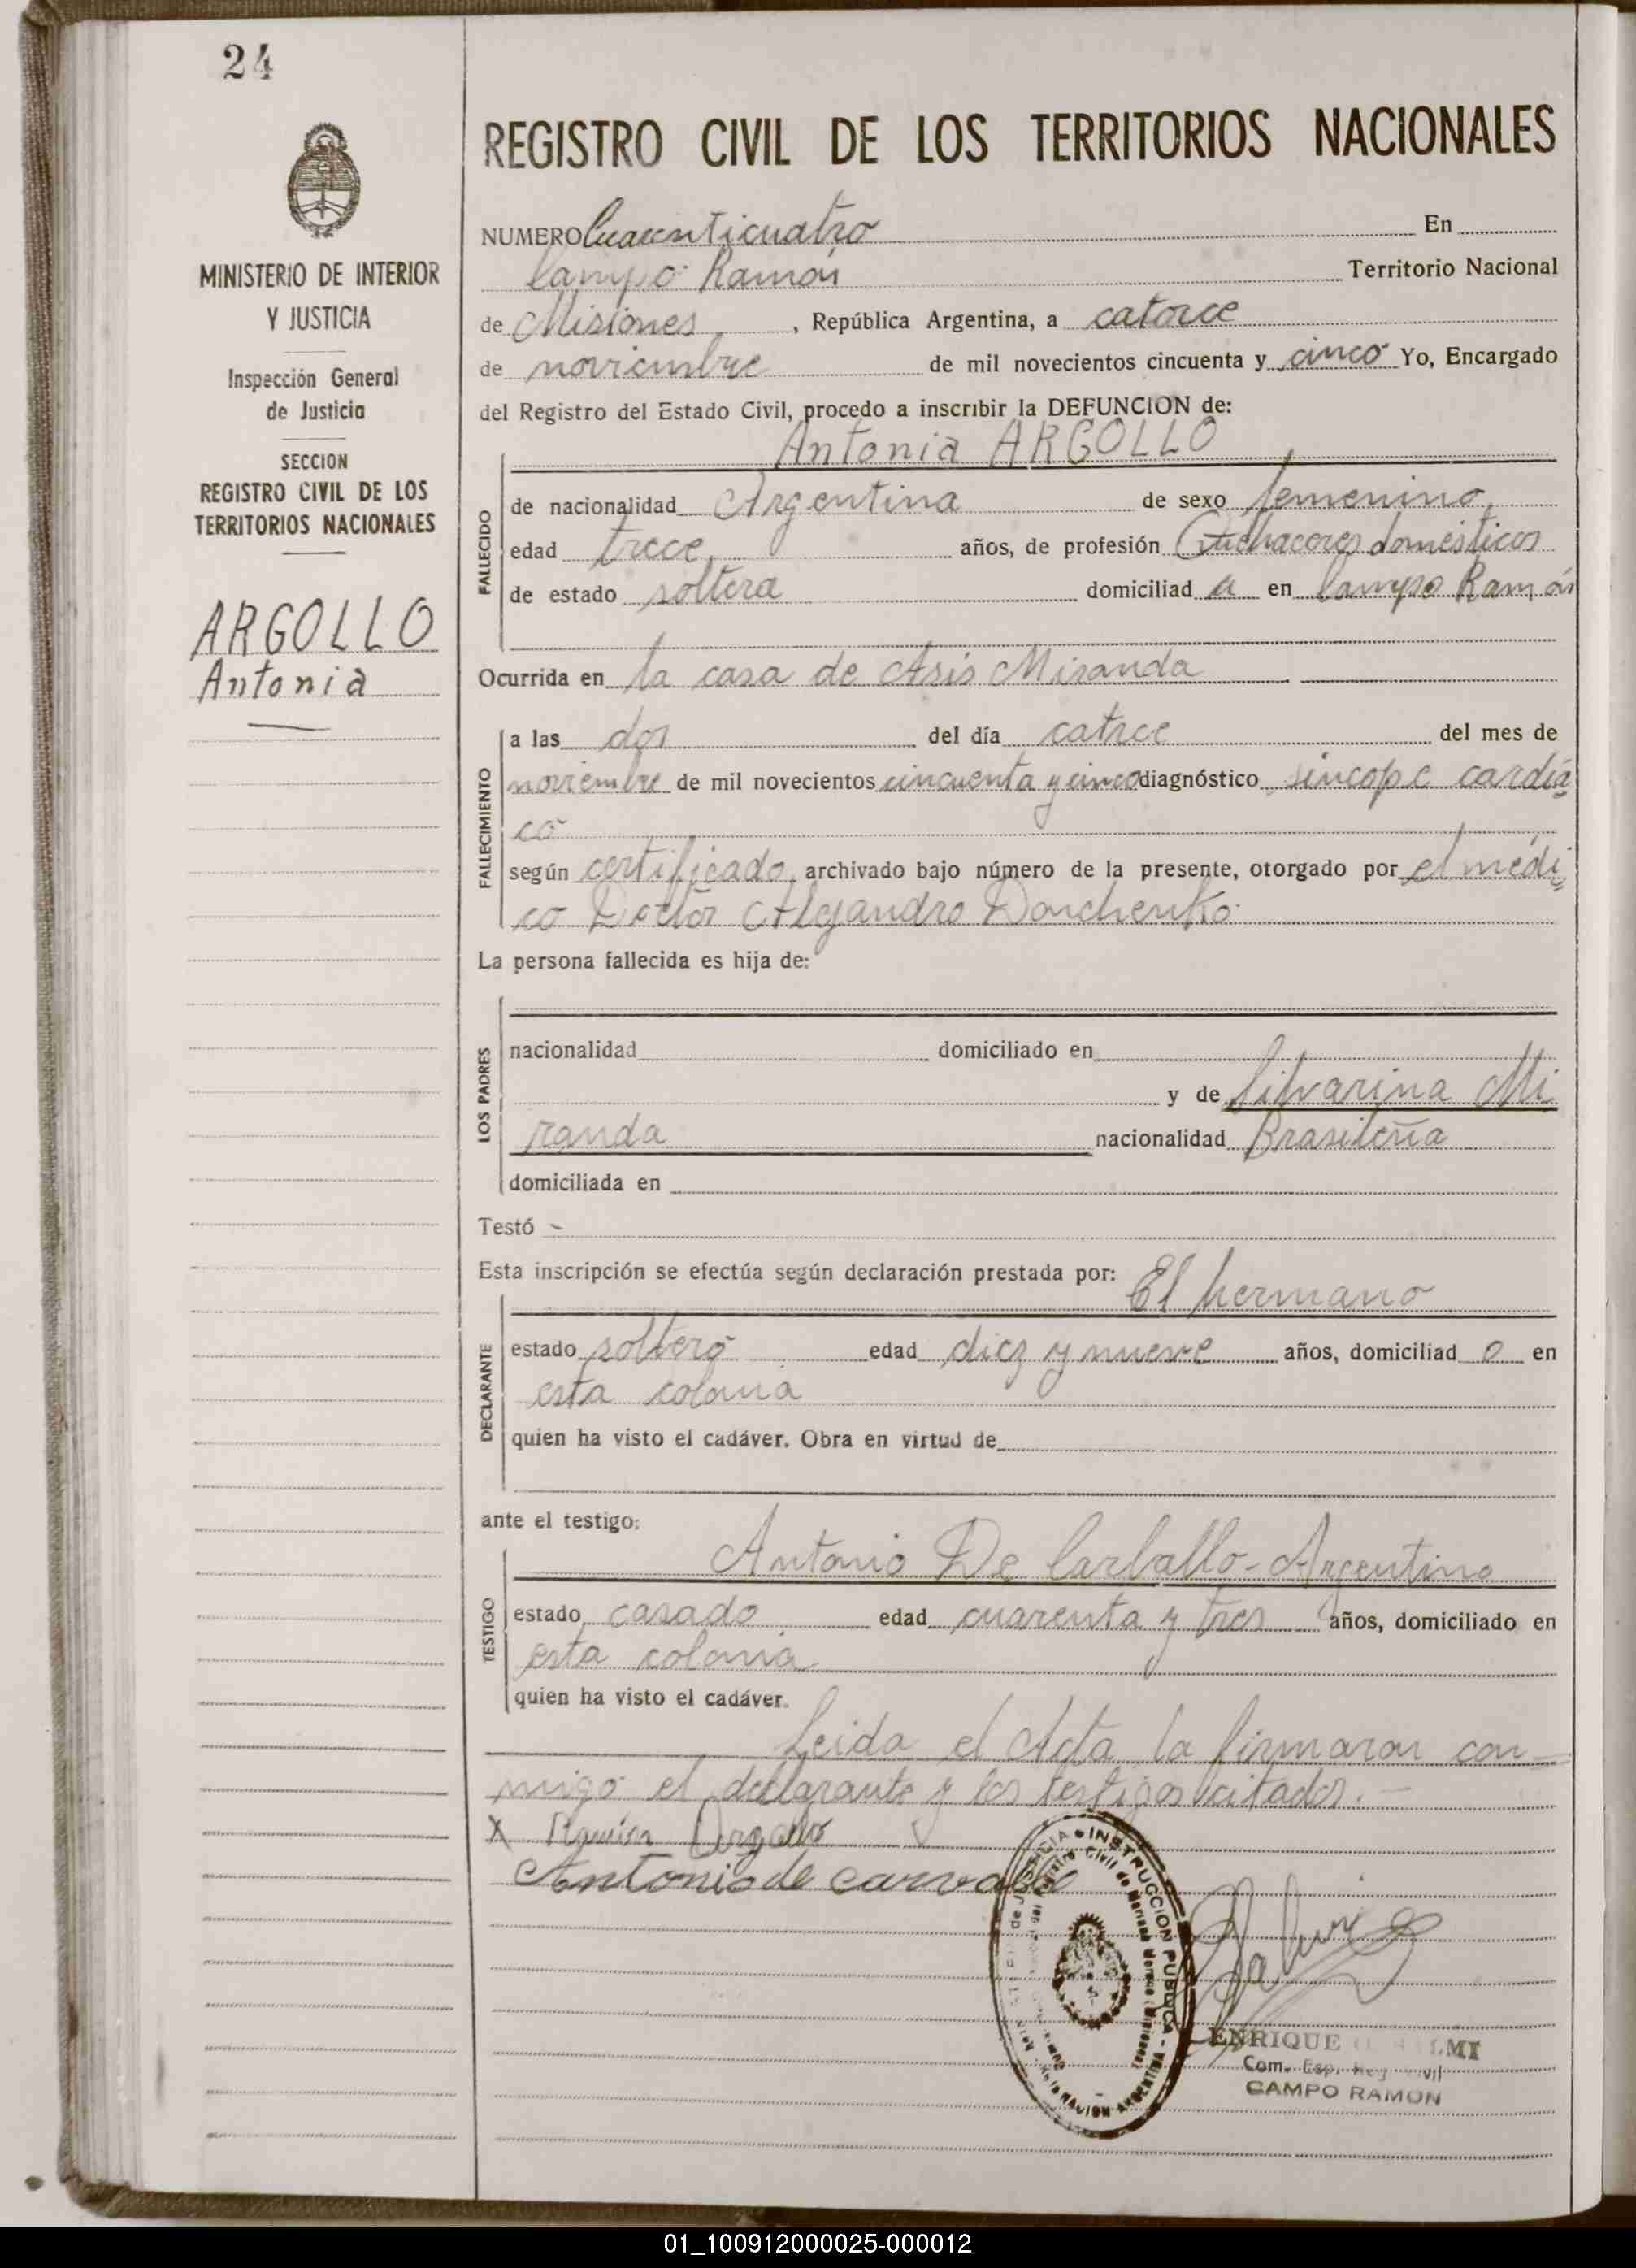 24
REGISTRO CIVIL DE LOS TERRITORIOS NACIONALES
MINISTERIO DE INTERIOR
Y JUSTICIA
Inspección General
de Justicia
SECCION
REGISTRO CIVIL DE LOS
TERRITORIOS NACIONALES
ARGOLLO
Antonia
NUMERO Cuarenticuatro En
Campo Ramón Territorio Nacional
de Misiones, República Argentina, a catorce
de noviembre de mil novecientos cincuenta y cinco Yo, Encargado
del Registro del Estado Civil, procedo a inscribir la DEFUNCION de:
Antonia ARGOLLO
FALLECIDO
de nacionalidad Argentina de sexo femenino
edad trece años, de profesión Quehaceres domésticos
de estado soltera domiciliad a en Campo Ramón
Ocurrida en la casa de Asis Miranda
FALLECIMIENTO
a las dos del día catrce del mes de
noviembre de mil novecientos cincuenta y cinco diagnóstico síncope cardía
co
según certificado archivado bajo número de la presente, otorgado por el médi
co Doctor Alejandro
La persona fallecida es hija de:
LOS PADRES
nacionalidad domiciliado en
y de Silvarina Mi
randa nacionalidad Brasileña
domiciliada en
Testó -
Esta inscripción se efectúa según declaración prestada por: El hermano
DECLARANTE
estado soltero edad diez y nueve años, domiciliad o en
esta colonia
quien ha visto el cadáver. Obra en virtud de
ante el testigo:
Antonio De Carballo - Argentino
TESTIGO
estado casado edad cuarenta y tres años, domiciliado en
esta colonia
quien ha visto el cadáver.
Leida el Acta la firmaron con-
migo el declarante y los testigos citados.-
X Argollo
Antonio de carvallo
INSTRUCCION PUBLICA
ENRIQUE
Com. Esp. Reg.
CAMPO RAMON
01_100912000025-000012